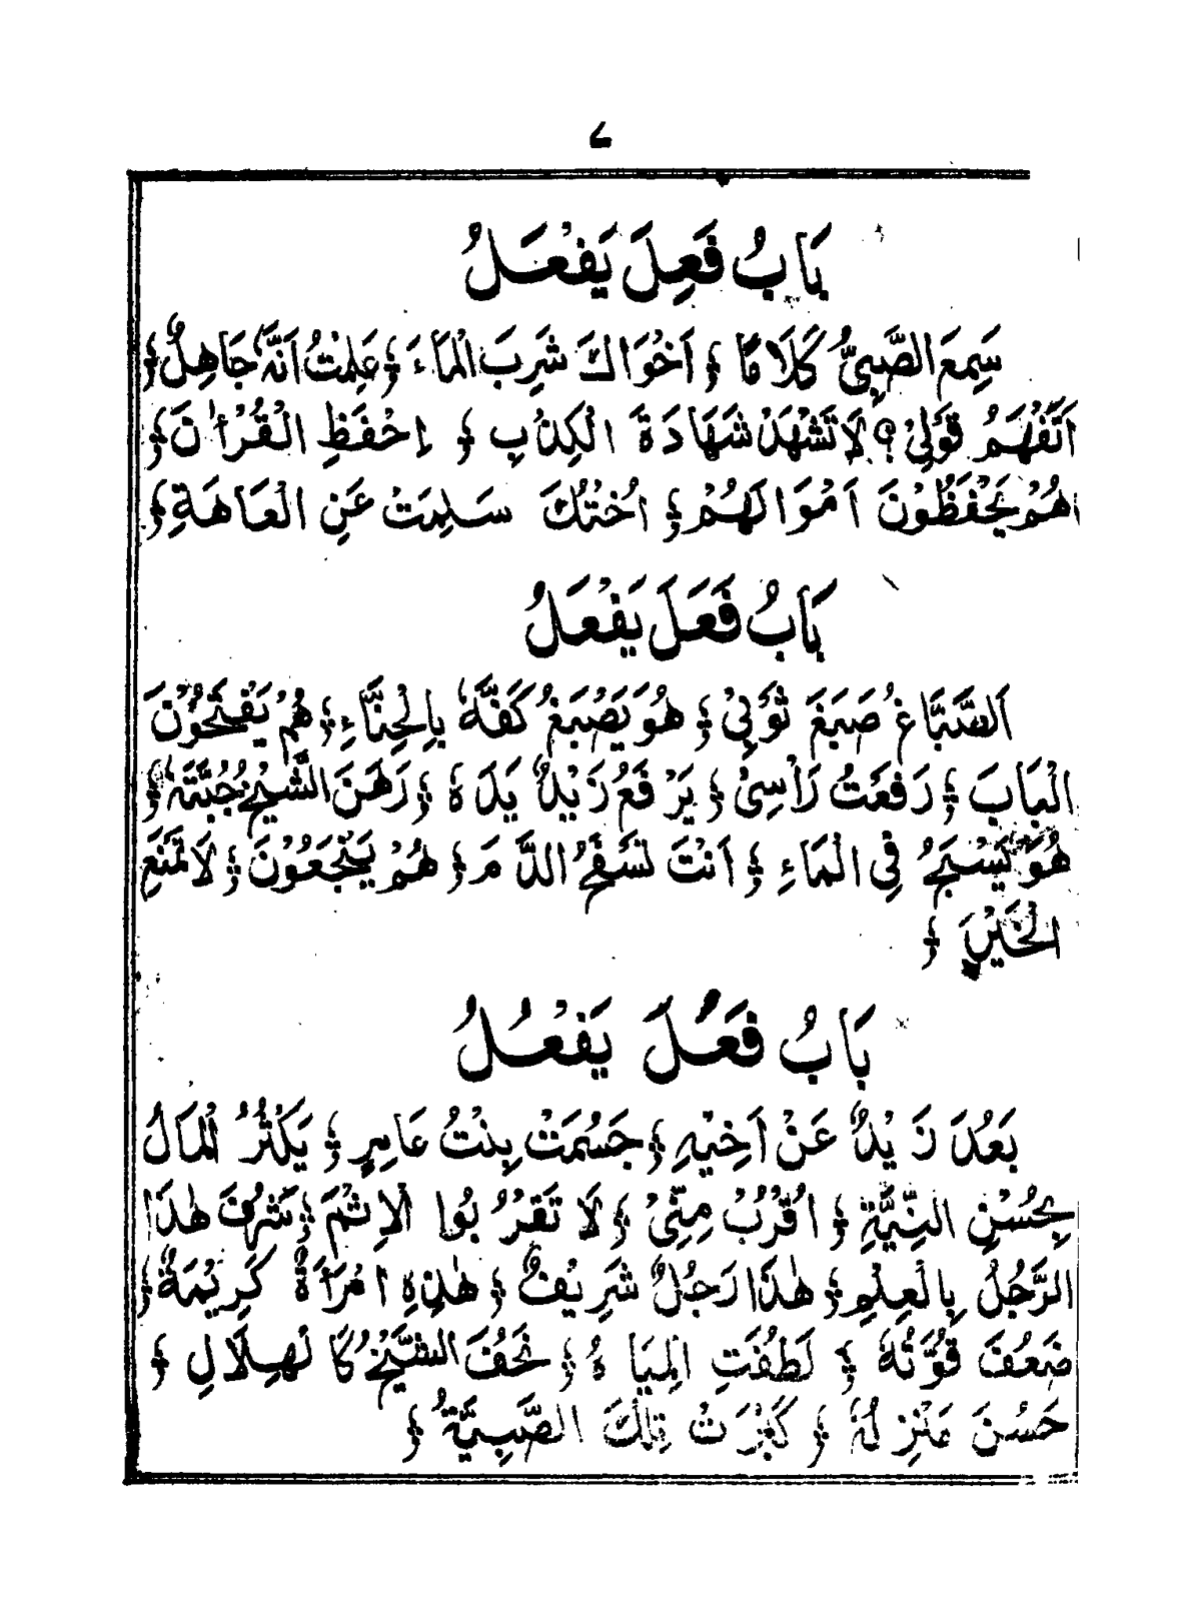 ۷
بَابُ فَعِلَ يَفْعَلُ
سَمِعَ الصَّبِيُّ كَلَامًا ﴿ اَخُوَاكَ شَرِبَ الْمَاءَ ﴿ عَلِمْتُ اَنَّهٗ جَاهِلٌ ﴿
اَتَفْهَمُ قَوْلِيْ ؟ لَا تَشْهَدْ شَهَادَةَ الْكِذْبِ ﴿ اِحْفَظِ الْقُرْاٰنَ ﴿
هُمْ يَحْفَظُوْنَ اَمْوَالَهُمْ ﴿ اُخْتُكَ سَلِمَتْ عَنِ الْعَاهَةِ ﴿
بَابُ فَعَلَ يَفْعَلُ
اَلصَّبَّاغُ صَبَغَ ثَوْبِيْ ﴿ هُوَ يَصْبَغُ كَفَّهٗ بِالْحِنَّاءِ ﴿ هُمْ يَفْتَحُوْنَ
الْبَابَ ﴿ رَفَعْتُ رَاْسِيْ ﴿ يَرْفَعُ زَيْدٌ يَدَهٗ ﴿ رَهَنَ الشَّيْخُ جُبَّتَهٗ ﴿
هُوَ يَسْبَحُ فِي الْمَاءِ ﴿ اَنْتَ تَسْفَحُ الدَّمَ ﴿ هُمْ يَنْجَعُوْنَ ﴿ لَا تَمْنَعِ
الْخَيْرَ ﴿
بَابُ فَعُلَ يَفْعُلُ
بَعُدَ زَيْدٌ عَنْ اَخِيْهِ ﴿ جَسُمَتْ بِنْتُ عَامِرٍ ﴿ يَكْثُرُ الْمَالُ
بِحُسْنِ النِّيَّةِ ﴿ اُقْرُبْ مِنِّيْ ﴿ لَا تَقْرُبُوا الْاِثْمَ ﴿ شَرُفَ هٰذَا
الرَّجُلُ بِالْعِلْمِ ﴿ هٰذَا رَجُلٌ شَرِيْفٌ ﴿ هٰذِهِ امْرَأَةٌ كَرِيْمَةٌ ﴿
ضَعُفَ قُوَّتُهٗ ﴿ لَطُفَتِ الْمِيَاهُ ﴿ نَحُفَ الشَّيْخُ كَالْهِلَالِ ﴿
حَسُنَ مَنْزِلُهٗ ﴿ كَبُرَتْ تِلْكَ الصَّبِيَّةُ ﴿